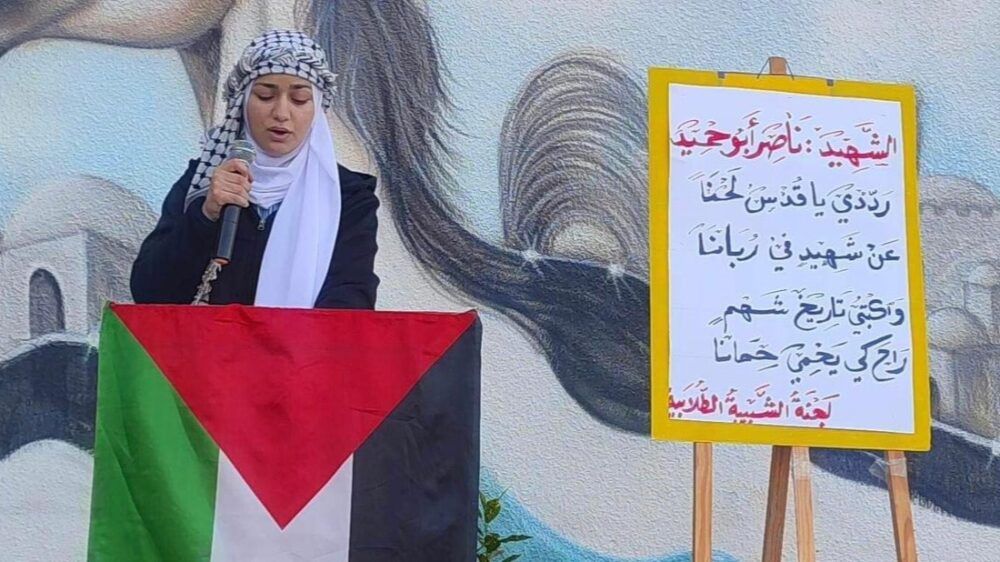 الشَّهِيد : نَاصِر أَبُو حَمِيد
رَدِّدِي يَا قُدْسُ لَحْنَاً
عَنْ شَهِيدٍ فِي رُبَانَا
وَاكْتُبِي تَارِيخَ شَهْمٍ
رَاحَ كَي يَحْمِي حِمَانَا
لَجْنَةُ الشَّبِيبَةُ الطُّلَّابِيَة